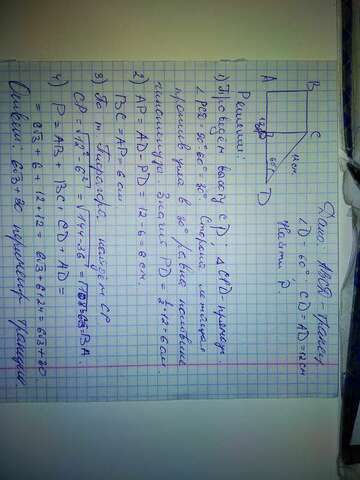 Дано: ABCD - трапец
∠D = 60°, CD = AD = 12 см
Найти P.
B
C
A
P
D
12 см
60°
Решение:
1) Проведем высоту CP. △CPD - прямоуг.
∠PCD = 90° - 60° = 30°. Сторона лежащая
против угла в 30° равна половине
гипотенузы. Значит PD = 12 = 6 см.
2) AP = AD - PD = 12 - 6 = 6 см.
BC = AP = 6 см
3) По т. Пифагора найдем CP
CP = √12² - 6² = √144 - 36 = = BA.
4) P = AB + BC + CD + AD =
= 6√3 + 6 + 12 + 12 = 6√3 + 6 + 24 = 6√3 + 30.
Ответ: 6√3 + 30 периметр трапеции.